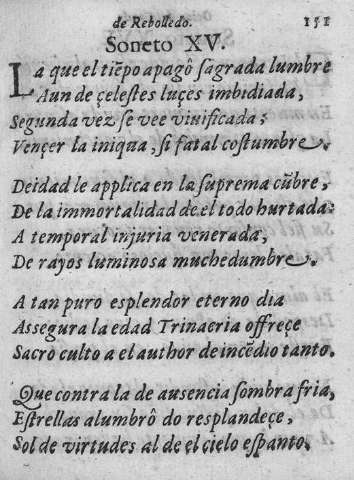 de Rebolledo. 151
Soneto XV.
La que el tiẽpo apagô sagrada lumbre
Aun de çelestes luçes imbidiada,
Segunda vez se vee viuificada;
Vençer la iniqua, si fatal costumbre.
Deidad le applica en la suprema cũbre,
De la immortalidad de el todo hurtada:
A temporal injuria venerada,
De rayos luminosa muchedumbre.
A tan puro esplendor eterno dia
Assegura la edad Trinacria offreçe
Sacro culto a el author de incẽdio tanto.
Que contra la de ausencia sombra fria,
Estrellas alumbrô do resplandeçe,
Sol de virtudes al de el çielo espanto.